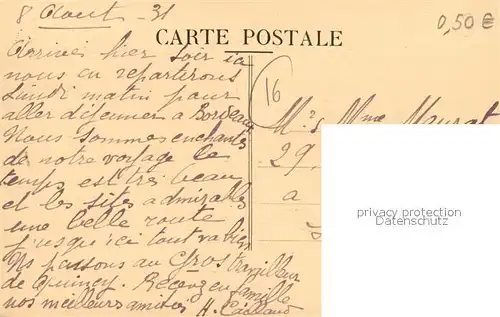 8 Aout 31
0,50 €
CARTE POSTALE
16
Arrivés hier soir ici
nous en repartirons
Lundi matin pour
aller déjeuner a Bordeaux
Nous sommes enchantés
de notre voyage le
temps est très beau
et les sites admirables
une belle route
jusqu'ici tout va bien
Ns passons au Gros travailleur
de Quincy. Recevez en famille
nos meilleurs amitiés H. Caillaud
Mr & Mme Meurat
29,
a
privacy protection
www.oldthing.de